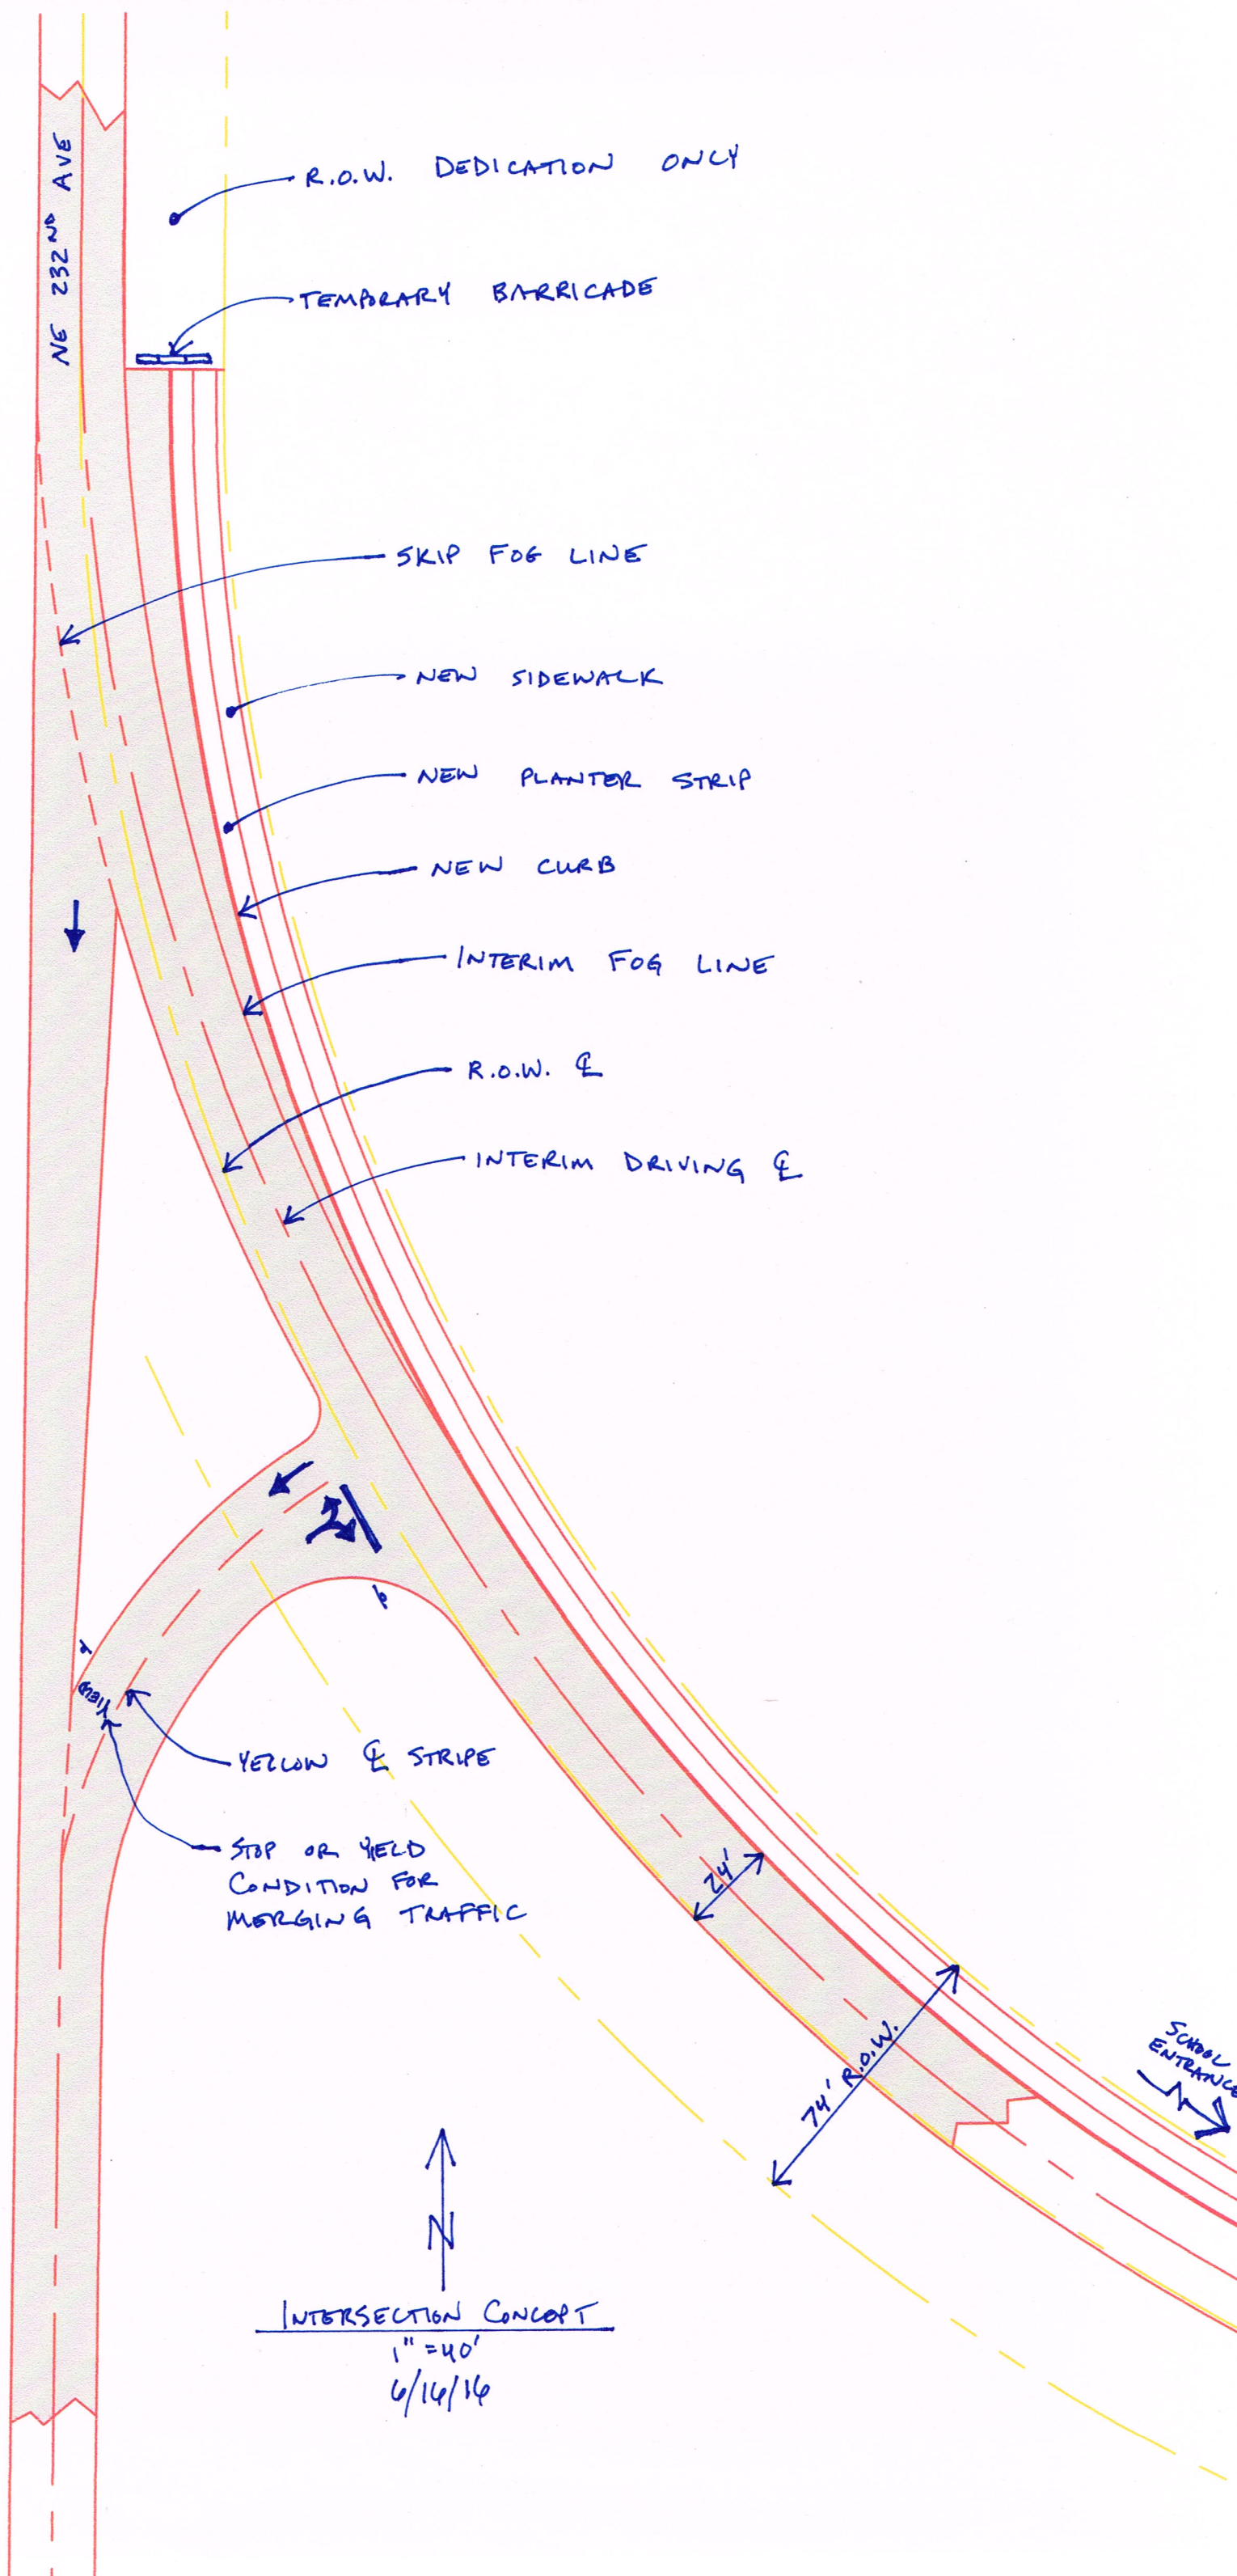 NE 232ND AVE
R.O.W. DEDICATION ONLY
TEMPORARY BARRICADE
SKIP FOG LINE
NEW SIDEWALK
NEW PLANTER STRIP
NEW CURB
INTERIM FOG LINE
R.O.W. ℄
INTERIM DRIVING ℄
YELLOW ℄ STRIPE
STOP OR YIELD
CONDITION FOR
MERGING TRAFFIC
24'
74' R.O.W.
SCHOOL
ENTRANCE
N
INTERSECTION CONCEPT
1" = 40'
6/16/16